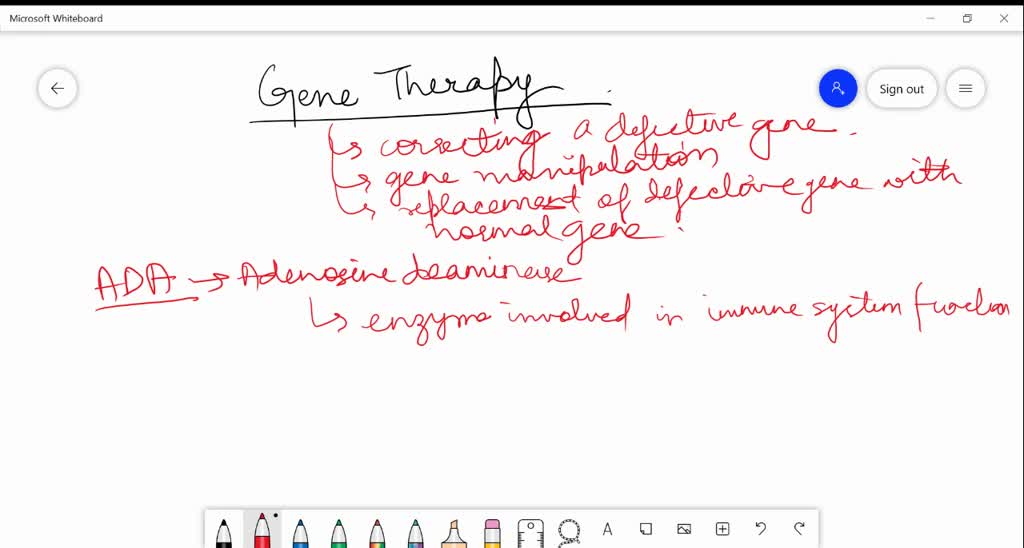 Microsoft Whiteboard
Sign out
Gene Therapy
↳ correcting a defective gene.
↳ gene manipulation
↳ replacement of defective gene with
normal gene.
ADA → Adenosine deaminase
↳ enzyme involved in immune system function
A